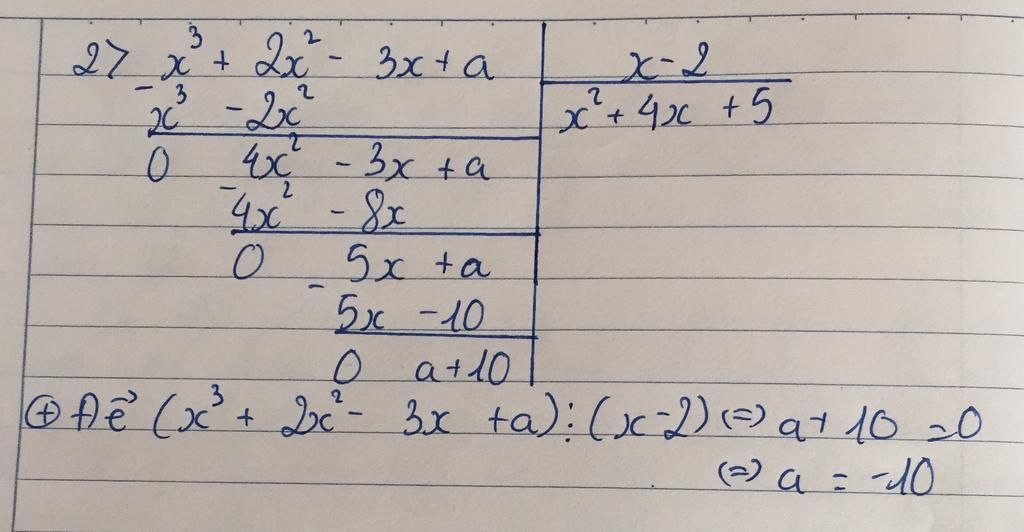 2> x³ + 2x² - 3x + a | x - 2
- x³ - 2x² | x² + 4x + 5
0 4x² - 3x + a
- 4x² - 8x
0 5x + a
- 5x - 10
0 a + 10
⊕ Để (x³ + 2x² - 3x + a) ⋮ (x - 2) (=) a + 10 = 0
(=) a = -10